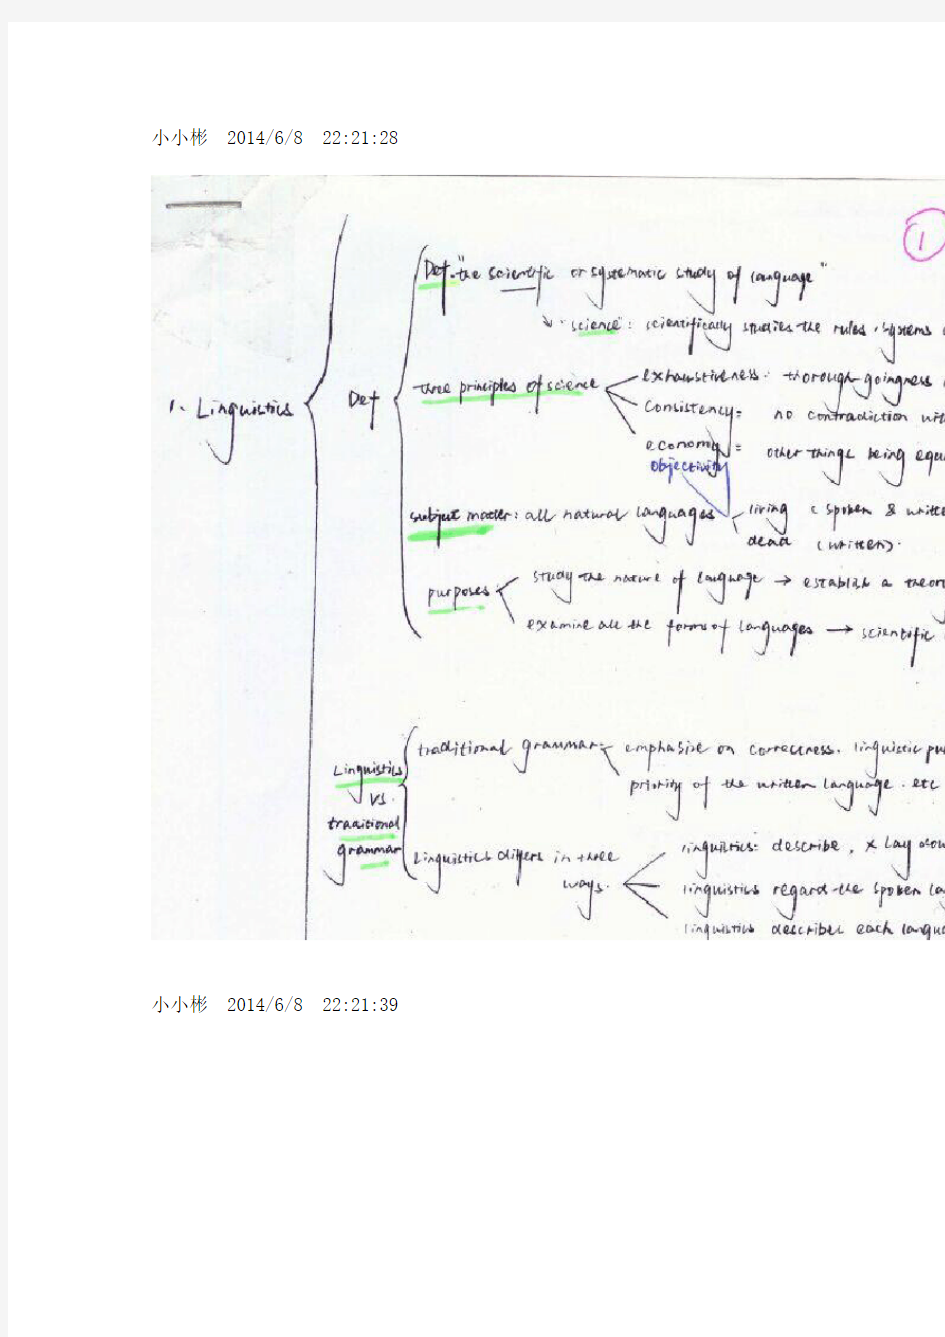 小小彬 2014/6/8 22:21:28
1
Def. "the scientific or systematic study of language"
"science": scientifically studies the rules, systems
three principles of science
exhaustiveness: thorough-goingness
Consistency: no contradiction
economy: other things being
objectivity
1. Linguistics
Def
subject matter: all natural languages
living (spoken &
dead (written).
purposes
study the nature of language → establish a
examine all the forms of languages → scientific
traditional grammar:
emphasize on correctness. linguistic
priority of the written language. etc
Linguistics
vs.
traditional
grammar
Linguistics differs in three
ways.
linguistics: describe, x lay
linguistics regard the spoken
linguistics describes each
小小彬 2014/6/8 22:21:39